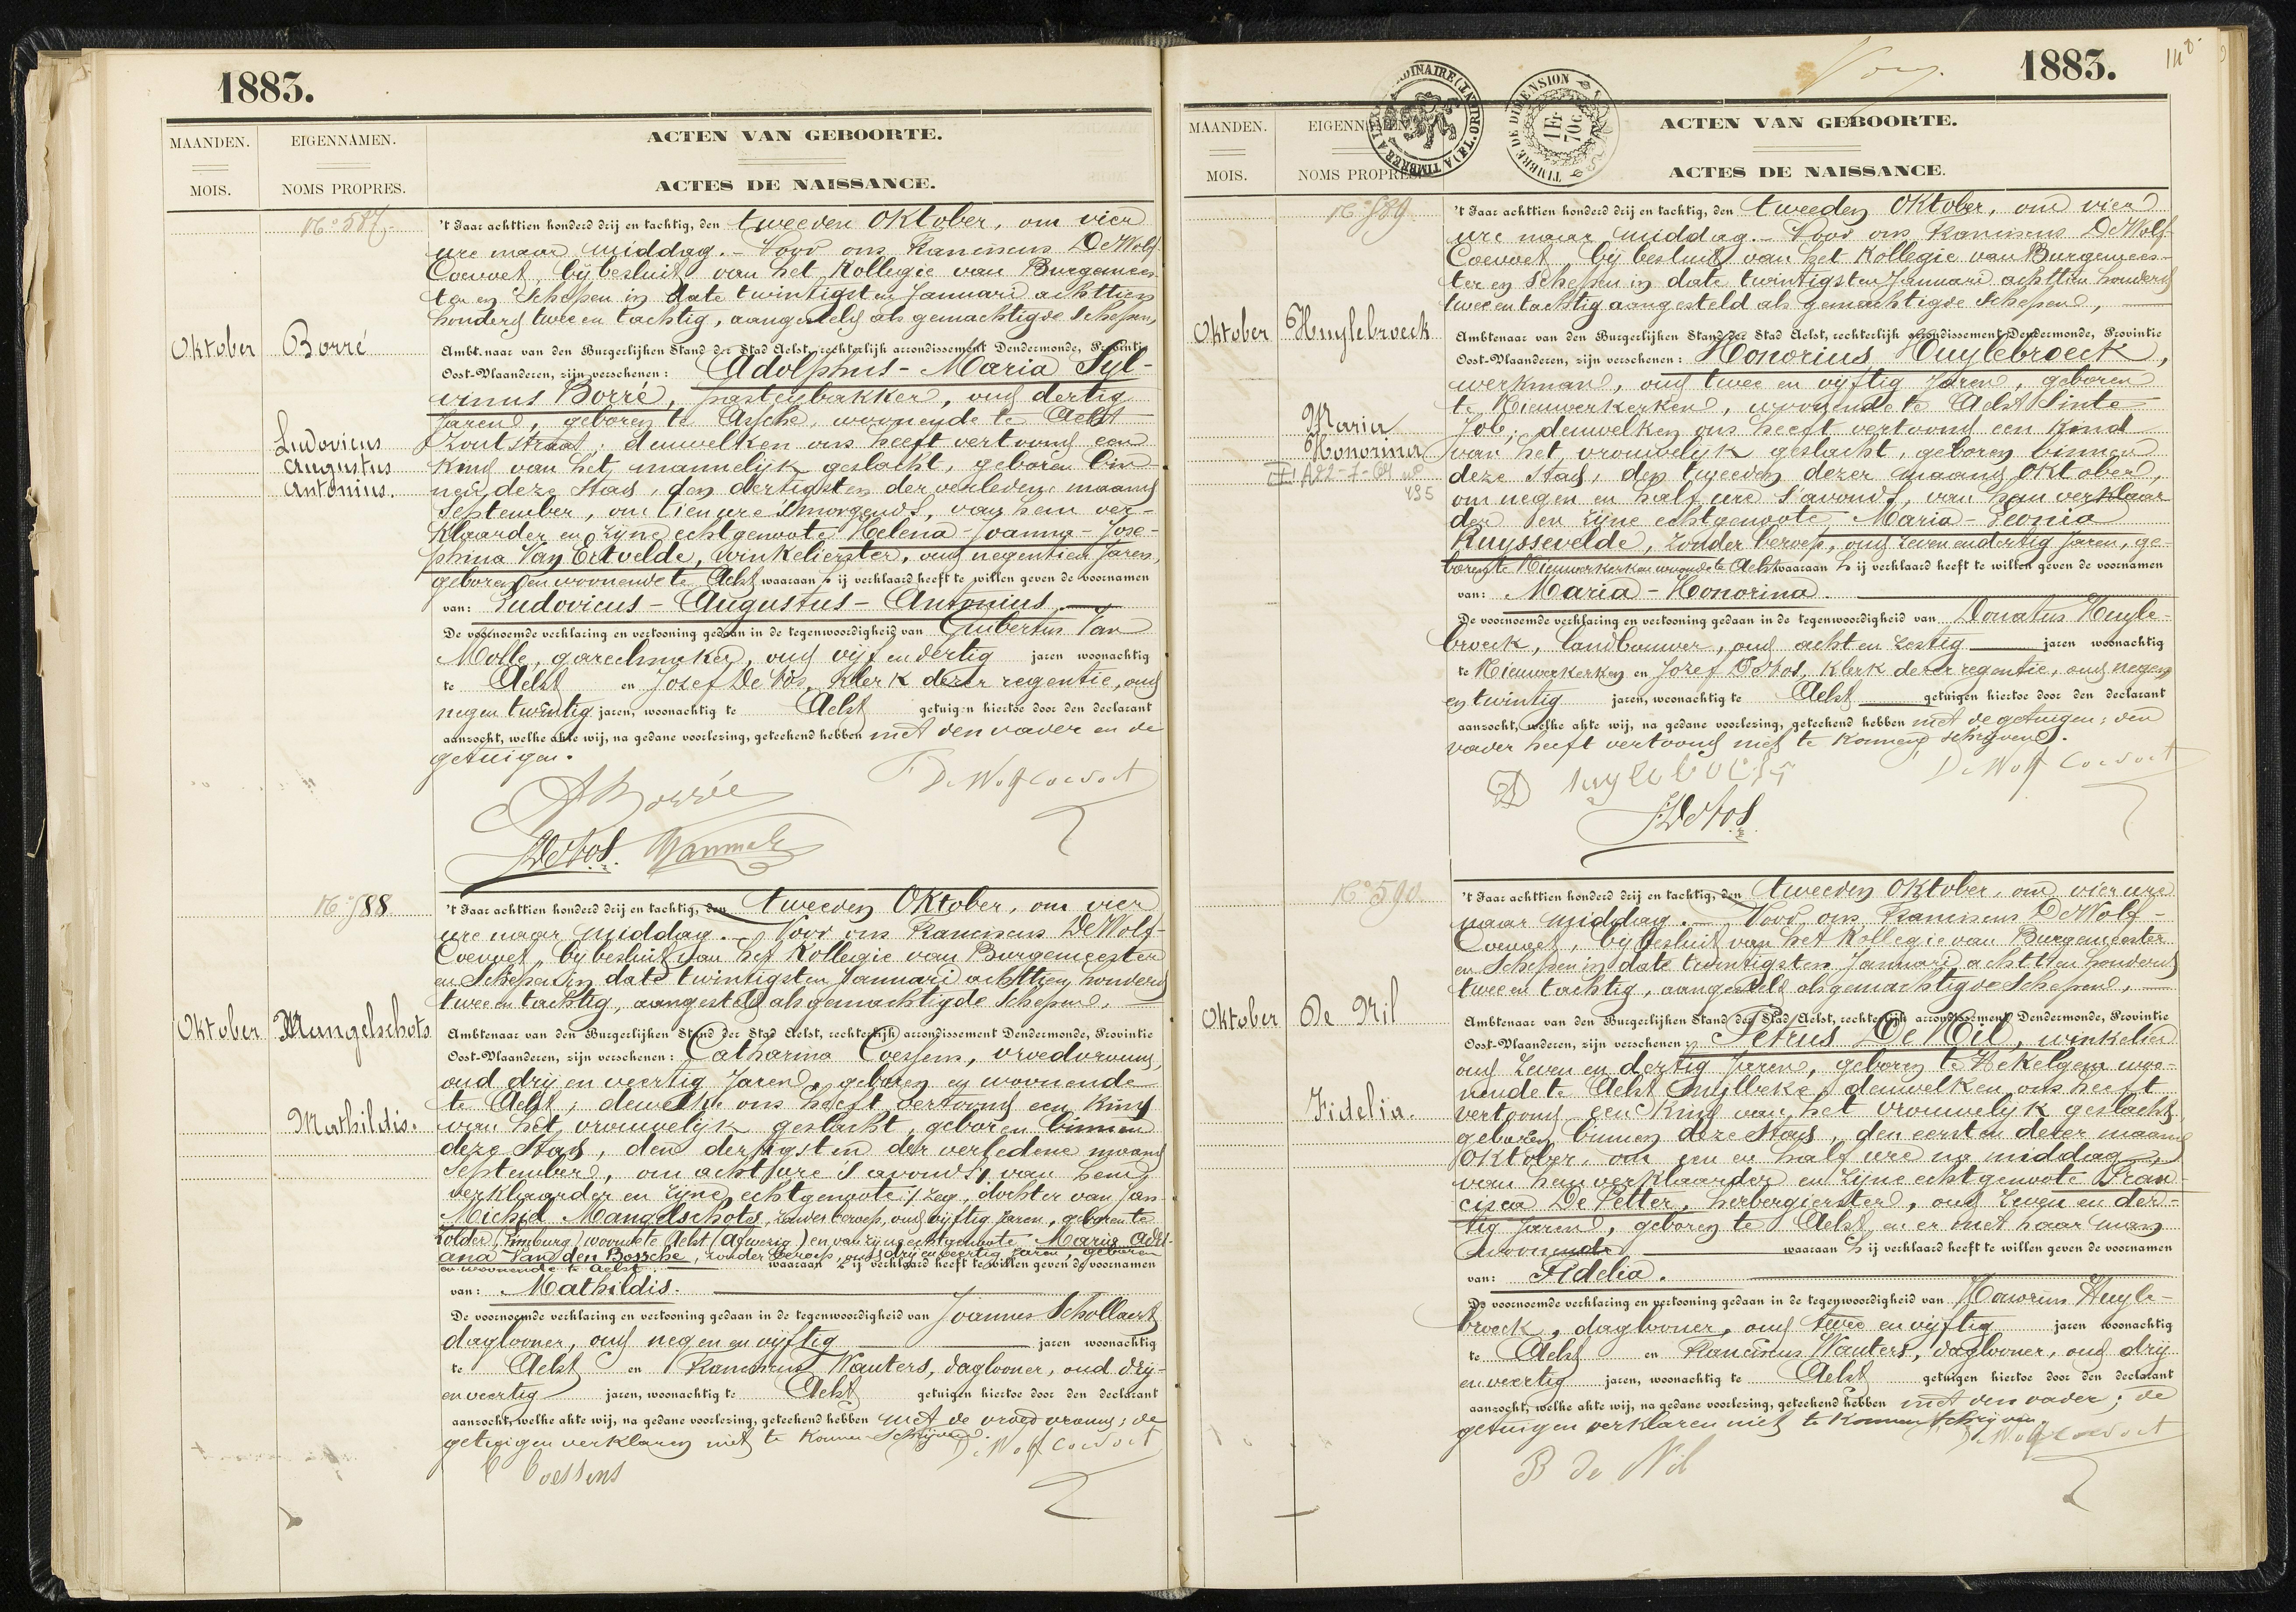 1883.
MAANDEN.
MOIS.
EIGENNAMEN.
NOMS PROPRES.
ACTEN VAN GEBOORTE.
ACTES DE NAISSANCE.
No 587.
Oktober
Borré
Ludovicus
Augustus
Antonius.
't Jaar achttien honderd drij en tachtig, den tweeden Oktober, om vier
ure naar middag. - Voor ons Franciscus De Wolf-
Coevoet, bij besluit van het Kollegie van Burgemees-
ter en Schepen in date twintigsten Januari achttien
honderd twee en tachtig, aangesteld als gemachtigde Schepen,
Ambtenaar van den Burgerlijken Stand der Stad Aelst, rechterlijk arrondissement Dendermonde, Provintie
Oost-Vlaanderen, zijn verschenen: Adolphus-Maria Syl-
vinus Borré, pasteybakker, oud dertig
Jaren, geboren te Assche, woonende te Aelst
Zoutstraat; denwelken ons heeft vertoond een
Kind van het mannelijk geslacht, geboren bin-
nen deze Stad, den dertigsten der verledene maand
September, om tien ure s'morgends, van hem ver-
klaarder en zijne echtgenoote Helena-Joanna-Jose-
phina Van Ertvelde, winkelierster, oud negentien Jaren,
geboren en woonende te Aelst waaraan hij verklaard heeft te willen geven de voornamen
van: Ludovicus-Augustus-Antonius,
De voornoemde verklaring en vertooning gedaan in de tegenwoordigheid van Guibertus Van
Molle, garechmaker, oud vijf en dertig jaren woonachtig
te Aelst en Jozef De Vos, Klerk dezer regentie, oud
negen twintig jaren, woonachtig te Aelst getuigen hiertoe door den declarant
aanzocht, welke akte wij, na gedane voorlezing, geteekend hebben met den vader en de
getuigen.
A Borré
F De Wolf Coevoet
J De Vos.
No 588
Oktober
Mangelschots
Mathildis.
't Jaar achttien honderd drij en tachtig, den tweeden Oktober, om vier
ure naar middag. - Voor ons Franciscus De Wolf-
Coevoet, bij besluit van het Kollegie van Burgemeester
en Schepen in date twintigsten Januari achttien honderd
twee en tachtig, aangesteld als gemachtigde Schepen,
Ambtenaar van den Burgerlijken Stand der Stad Aelst, rechterlijk arrondissement Dendermonde, Provintie
Oost-Vlaanderen, zijn verschenen: Catharina Coessens, vroedvrouw,
oud drij en veertig Jaren, geboren en woonende
te Aelst; dewelke ons heeft vertoond een Kind
van het vrouwelijk geslacht, geboren binnen
deze Stad, den dertigsten der verledene maand
September, om acht ure s'avonds, van hem
verklaarder en zijne echtgenoote :/ zeg, dochter van Jan
Michiel Mangelschots, zonder beroep, oud vijftig Jaren, geboren te
Zolder (Limburg) woonende te Aelst (Afwezig) en van zijne echtgenoote Maria Adri-
ana Van den Bossche, zonder beroep, oud drij en veertig jaren, geboren
en woonende te Aelst. waaraan zij verklaard heeft te willen geven de voornamen
van: Mathildis.
De voornoemde verklaring en vertooning gedaan in de tegenwoordigheid van Joannes Schollaert
daglooner, oud negen en vijftig jaren woonachtig
te Aelst en Franciscus Wauters, daglooner, oud drij-
en veertig jaren, woonachtig te Aelst getuigen hiertoe door den declarant
aanzocht, welke akte wij, na gedane voorlezing, geteekend hebben met de vroedvrouw; de
getuigen verklaren niet te konnen Schrijven.
De Wolf Coevoet
C Coessens
1883.
148
ORDINAIRE (TIMBRE A L'EXTRAORD.)
TIMBRE DE DIMENSION
1 Fr
70c
MAANDEN.
MOIS.
EIGENNAMEN.
NOMS PROPRES.
ACTEN VAN GEBOORTE.
ACTES DE NAISSANCE.
No 589
Oktober
Huylebroeck
Maria
Honorina
A 22-7-64 no
495
't Jaar achttien honderd drij en tachtig, den tweeden Oktober, om vier
ure naar middag. - Voor ons Franciscus De Wolf-
Coevoet, bij besluit van het Kollegie van Burgemees-
ter en Schepen in date twintigsten Januari achttien honderd
twee en tachtig aangesteld als gemachtigde Schepen,
Ambtenaar van den Burgerlijken Stand der Stad Aelst, rechterlijk arrondissement Dendermonde, Provintie
Oost-Vlaanderen, zijn verschenen: Honorius Huylebroeck,
werkman, oud twee en vijftig Jaren, geboren
te Nieuwerkerken, woonende te Aelst Sinte
Job; denwelken ons heeft vertoond een Kind
van het vrouwelyk geslacht, geboren binnen
deze Stad, den tweeden dezer maand Oktober,
om negen en half ure s'avonds, van hem verklaar
der en zijne echtgenoote Maria-Leonia
Ruyssevelde, zonder beroep, oud zeven en dertig Jaren, ge-
boren te Nieuwerkerken woonende te Aelst waaraan hij verklaard heeft te willen geven de voornamen
van: Maria-Honorina.
De voornoemde verklaring en vertooning gedaan in de tegenwoordigheid van Donatus Huyle-
broeck, landbouwer, oud acht en zestig jaren woonachtig
te Nieuwerkerken en Jozef De Vos, Klerk dezer regentie, oud negen
en twintig jaren, woonachtig te Aelst getuigen hiertoe door den declarant
aanzocht, welke akte wij, na gedane voorlezing, geteekend hebben met de getuigen; den
vader heeft vertoond niet te konnen schrijven.
De Wolf Coevoet
J De Vos
No 590
Oktober
De Nil
Fidelia.
't Jaar achttien honderd drij en tachtig, den tweeden Oktober, om vier ure
naar middag. - Voor ons Franciscus De Wolf-
Coevoet, bij besluit van het Kollegie van Burgemeester
en Schepen in date twintigsten Januari achttien honderd
twee en tachtig, aangesteld als gemachtigde Schepen,
Ambtenaar van den Burgerlijken Stand der Stad Aelst, rechterlijk arrondissement Dendermonde, Provintie
Oost-Vlaanderen, zijn verschenen: Petrus De Nil, winkelier
oud zeven en dertig Jaren, geboren te Hekelgem woo-
nende te Aelst Muylbeke; denwelken ons heeft
vertoond een Kind van het vrouwelyk geslacht
geboren binnen deze Stad, den eersten dezer maand
Oktober, om een en half ure na middag,
van hem verklaarder en zijne echtgenoote Fran-
cisca De Petter, herbergierster, oud zeven en der-
tig Jaren, geboren te Aelst en er met haar man
woonende waaraan hij verklaard heeft te willen geven de voornamen
van: Fidelia.
De voornoemde verklaring en vertooning gedaan in de tegenwoordigheid van Honorius Huyle-
broeck, daglooner, oud twee en vijftig jaren woonachtig
te Aelst en Franciscus Wauters, daglooner, oud drij
en veertig jaren, woonachtig te Aelst getuigen hiertoe door den declarant
aanzocht, welke akte wij, na gedane voorlezing, geteekend hebben met den vader; de
getuigen verklaren niet te konnen Schrijven.
De Wolf Coevoet
P de Nil